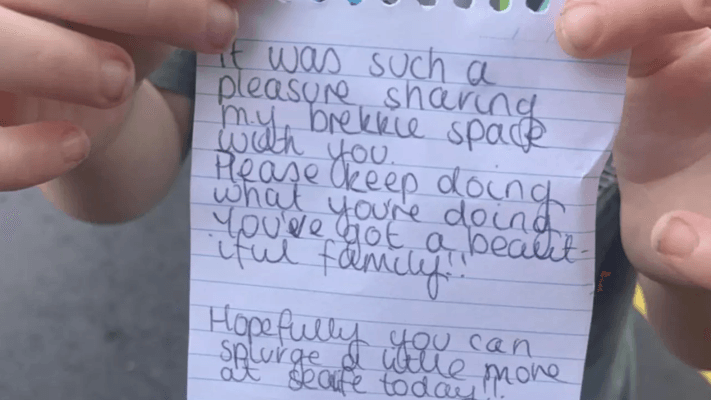 It was such a
pleasure sharing
my brekkie space
with you.
Please keep doing
what you're doing
You've got a beaut-
iful family!!
Hopefully you can
splurge a little more
at today!!